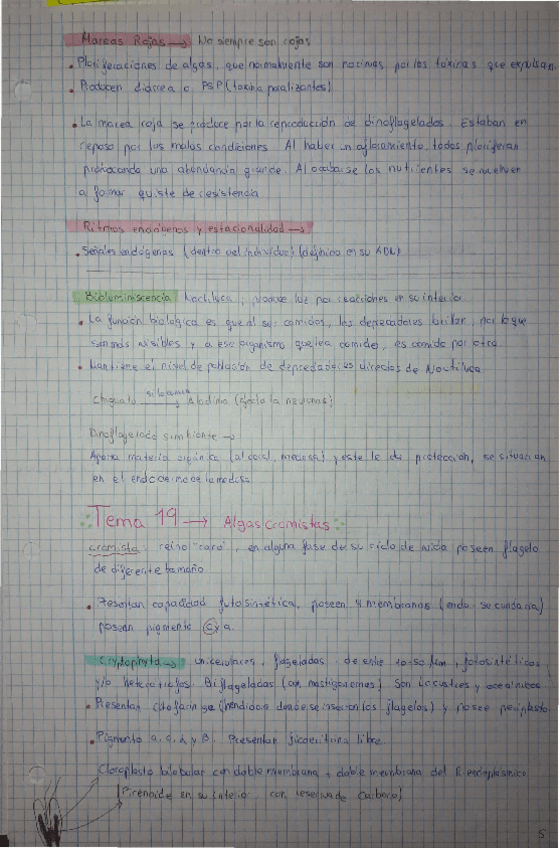 Mareas Rojas → No siempre son rojas
• Proliferaciones de algas, que normalmente son nocivas por las toxinas que expulsan.
• Producen diarrea o PSP (toxina paralizantes)
• La marea roja se produce por la reproducción de dinoflagelados. Estaban en
reposo por las malas condiciones. Al haber un afloramiento, todos proliferan
provocando una abundancia grande. Al acabarse los nutrientes se vuelven
a formar quiste de resistencia
Ritmos endógenos y estacionalidad →
• Señales endógenas (dentro del individuo) (definido en su ADN)
Bioluminiscencia Noctiluca, produce luz por reacciones en su interior
• La función biológica es que al ser comidos, los depredadores brillan, por lo que
son más visibles y a ese organismo que lea comido, es comido por otro.
• Mantiene el nivel de población de depredadores directos de Noctiluca
Dinoflagelado simbionte →
Aporta materia orgánica (al coral, medusa) y este le da protección, se situan
en el endodermo de la medusa
Tema 19 → Algas cromistas
cromista: reino "raro", en alguna fase de su ciclo de vida poseen flagelo
de diferente tamaño
• Presentan capacidad fotosintética, poseen 4 membranas (endo. secundaria)
poseen pigmento c y a.
Cryptophyta → unicelulares, flagelados, de entre 10-50 µm, fotosintéticos
y/o heterótrofos. Biflagelados (con mastigonemas) Son lacustres y oceánicos
• Presentan citofaringe (hendidura donde se insertan los flagelos) y posee periplasto
• Pigmento a, c, α y β. Presentan ficoeritrina libre.
Cloroplasto bilobular con doble membrana + doble membrana del R. endoplásmico
(Pirenoide en su interior con reserva de Carbono)
5